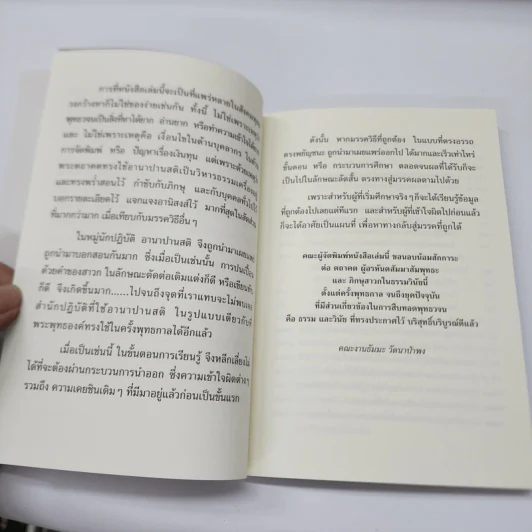 การที่หนังสือเล่มนี้จะเป็นที่แพร่หลายในสังคมพุทธ
วงกว้างหาก็ไม่ใช่ของง่ายเช่นกัน ทั้งนี้ ไม่ใช่เพราะเหตุว่า
พุทธวจนเป็นสิ่งที่หาได้ยาก อ่านยาก หรือทำความเข้าใจได้ยาก
และ ไม่ใช่เพราะเหตุคือ เงื่อนไขในด้านบุคลากร ในด้าน
การจัดพิมพ์ หรือ ปัญหาเรื่องเงินทุน แต่เพราะด้วยเหตุ
พระตถาคตทรงใช้อานาปานสติเป็นวิหารธรรมเครื่องอยู่
และทรงพร่ำสอนไว้ กำชับกับภิกษุ และกับบุคคลทั่วไปไว้
บอกรายละเอียดไว้ แจกแจงอานิสงส์ไว้ มากที่สุดในสัดส่วน
ที่มากกว่ามาก เมื่อเทียบกับมรรควิธีอื่นๆ
ในหมู่นักปฏิบัติ อานาปานสติ จึงถูกนำมาเผยแผ่
ถูกนำมาบอกสอนกันมาก ซึ่งเมื่อเป็นเช่นนั้น การปนเปื้อน
ด้วยคำของสาวก ในลักษณะตัดต่อเติมแต่งก็ดี หรือเขียนทับ
ก็ดี จึงเกิดขึ้นมาก......ไปจนถึงจุดที่เราแทบจะไม่พบ
สำนักปฏิบัติที่ใช้อานาปานสติ ในรูปแบบเดียวกับที่
พระพุทธองค์ทรงใช้ในครั้งพุทธกาลได้อีกแล้ว
เมื่อเป็นเช่นนี้ ในขั้นตอนการเรียนรู้ จึงหลีกเลี่ยงไม่
ได้ที่จะต้องผ่านกระบวนการนำออก ซึ่งความเข้าใจผิดต่างๆ
รวมถึง ความเคยชินเดิมๆ ที่มีมาอยู่แล้วก่อนเป็นขั้นแรก
ดังนั้น หากมรรควิธีที่ถูกต้อง ในแบบที่ตรงอรรถ
ตรงพยัญชนะ ถูกนำมาเผยแพร่ออกไป ได้มากและเร็วเท่าไหร่
ขั้นตอน หรือ กระบวนการศึกษา ตลอดจนผลที่ได้รับก็จะ
เป็นไปในลักษณะลัดสั้น ตรงทางสู่มรรคผลตามไปด้วย
เพราะสำหรับผู้ที่เริ่มศึกษาจริงๆ ก็จะได้เรียนรู้ข้อมูล
ที่ถูกต้องไปเลยแต่ทีแรก และสำหรับผู้ที่เข้าใจผิดไปก่อนแล้ว
ก็จะได้อาศัยเป็นแผนที่ เพื่อหาทางกลับสู่มรรคที่ถูกได้
คณะผู้จัดพิมพ์หนังสือเล่มนี้ ขอนอบน้อมสักการะ
ต่อ ตถาคต ผู้อรหันตสัมมาสัมพุทธะ
และ ภิกษุสาวกในธรรมวินัยนี้
ตั้งแต่ครั้งพุทธกาล จนถึงยุคปัจจุบัน
ที่มีส่วนเกี่ยวข้องในการสืบทอดพุทธวจน
คือ ธรรม และวินัย ที่ทรงประกาศไว้ บริสุทธิ์บริบูรณ์ดีแล้ว
คณะงานธัมมะ วัดนาป่าพง